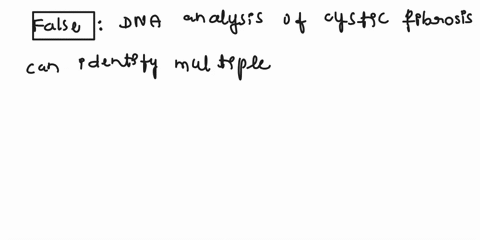 False : DNA analysis of cystic fibrosis
can identify multiple